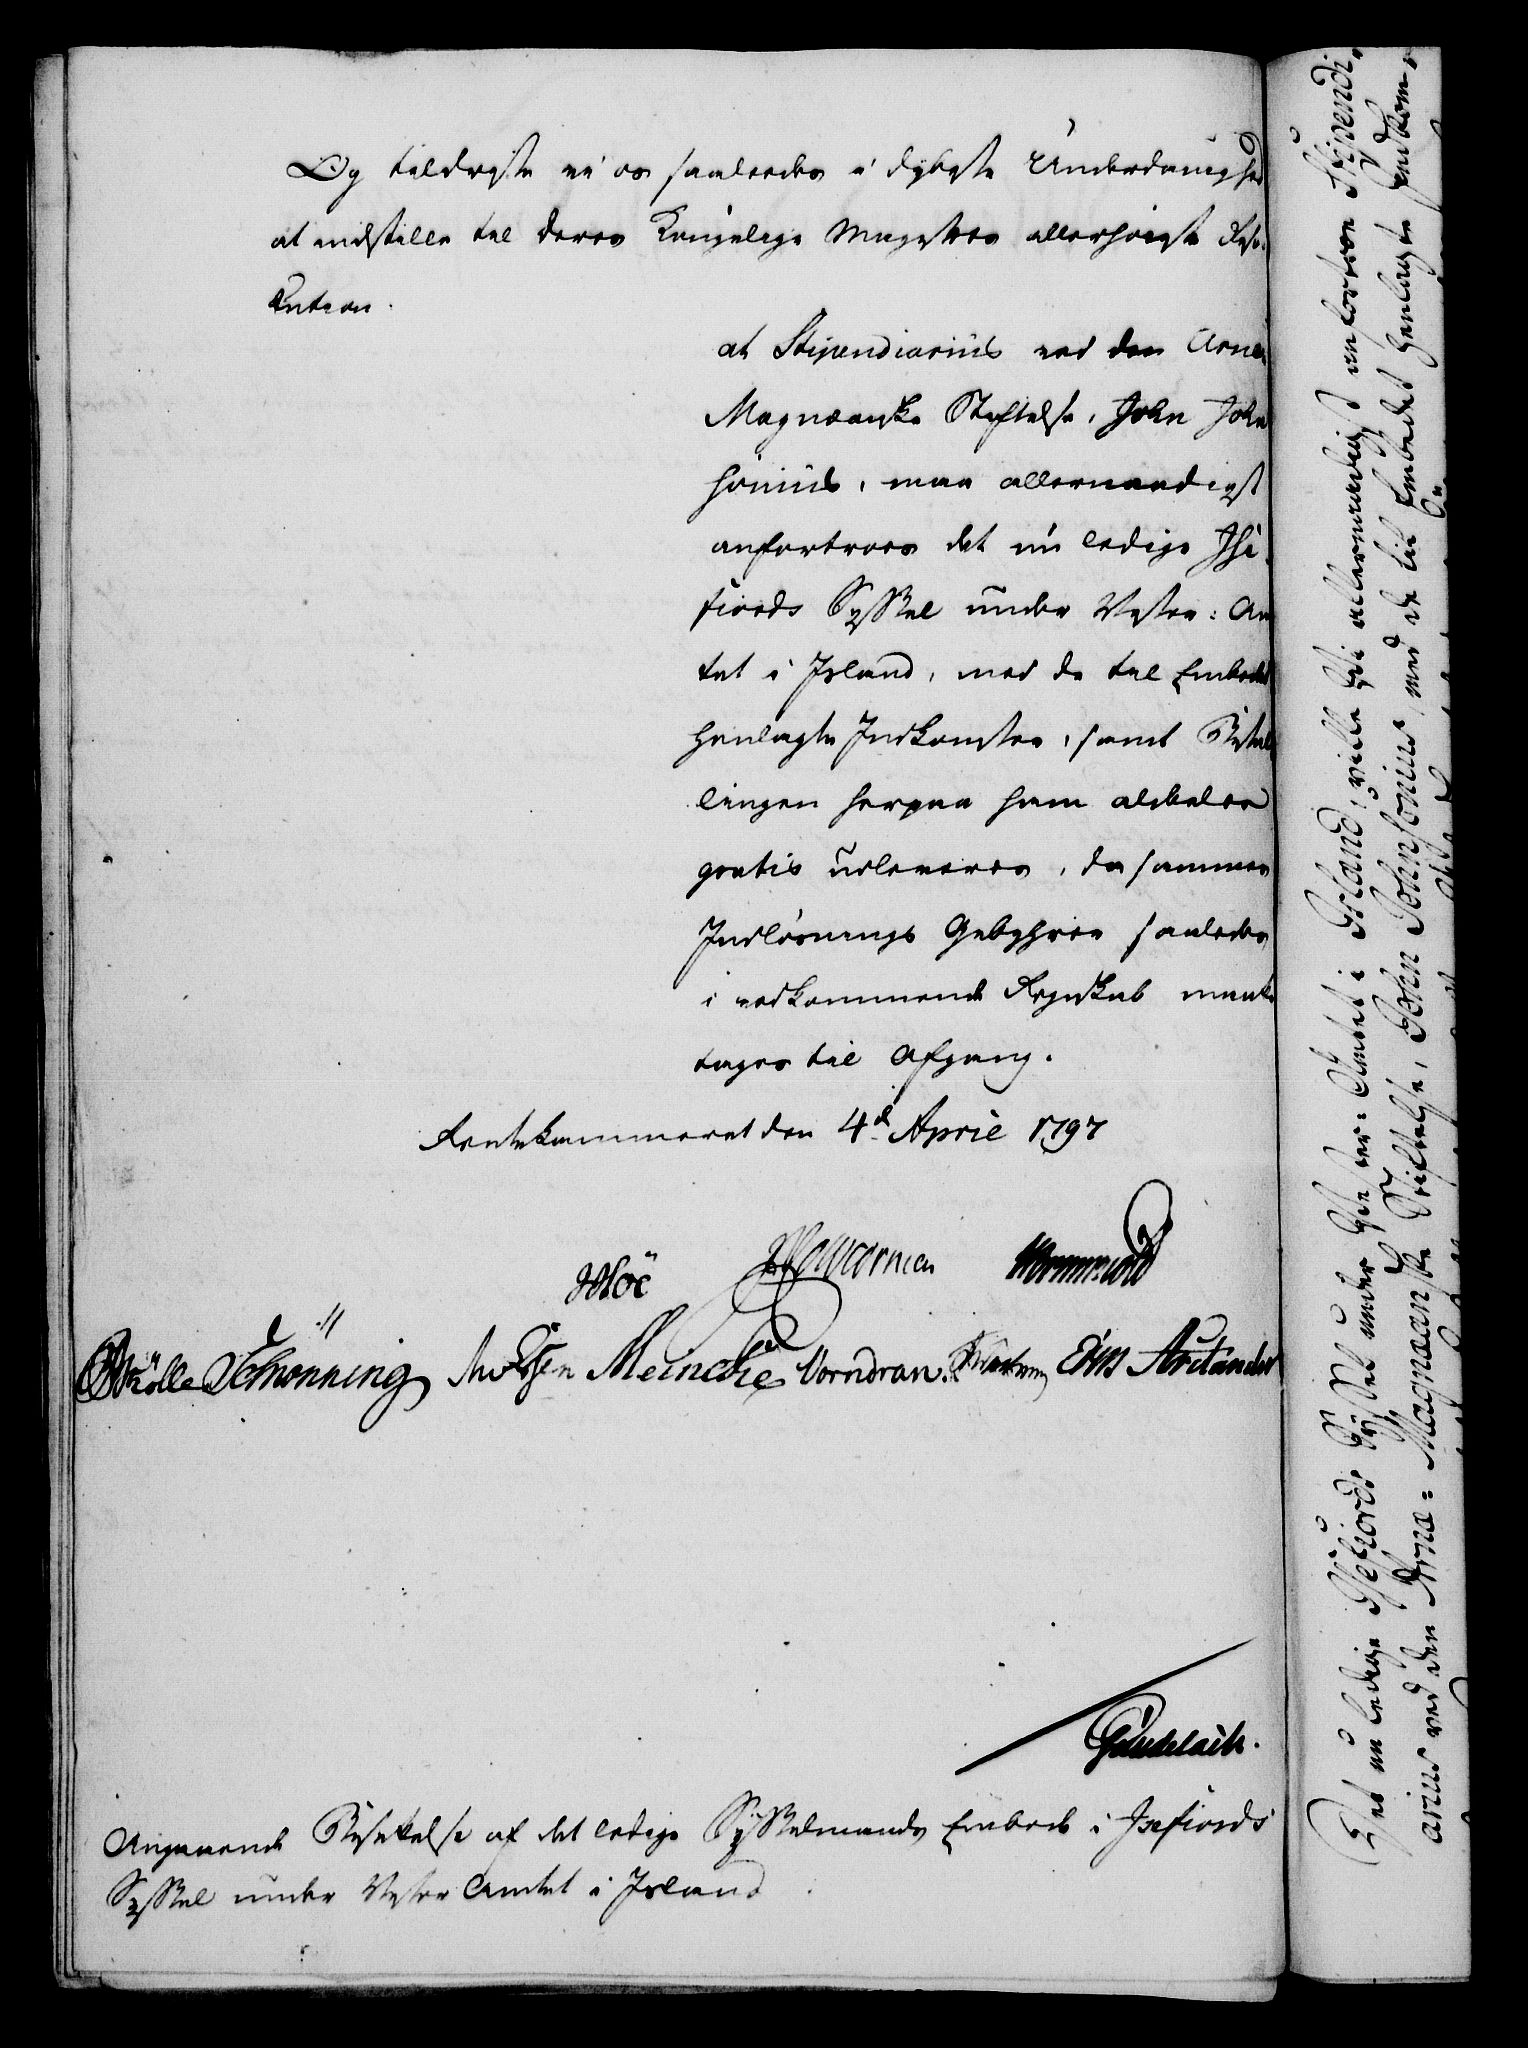 Og tildriste vi os saaledes i dybeste Underdanighed
at indstille til Deres Kongelige Majestæts allerhøieste Reso-
lution.
at Stipendiarius ved den Arnæ-
Magnæanske Stiftelse, John John-
sonius, maa allernaadigst
anfortroes det nu ledige Ise-
fiords Syssel under Vester-Am-
tet i Island, med de til Embedet
henlagte Indkomster, samt Bestal-
lingen herpaa ham aldeles
gratis udleveres, da sammes
Indløsnings Gebyhrer saaledes
i vedkommende Regnskab maatte
tages til Afgang.
Rentekammeret den 4d April 1797
Hoë Wormskiold
Schönning Meincke Vorndran. Arctander
Gundelach.
Angaaende Besættelse af det ledige Sysselmands Embede i Isefiords
Syssel under Vester Amtet i Island
Det nu ledige Isefiords Syssel under Vester-Amtet i Island, ville Vi allernaadigst anfortroe Stipendi-
arius ved den Arnæ-Magnæanske Stiftelse, John Johnsonius, med de til Embedet henlagte Indkom-